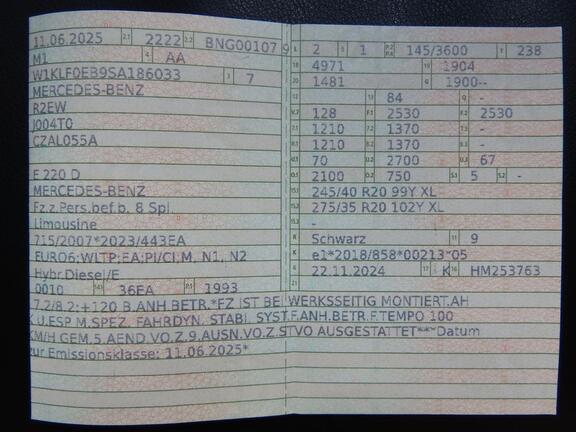 11.06.2025 2.1 2222 2.2 BNG00107 9
M1 4 AA
W1KLF0EB9SA186033 3 7
MERCEDES-BENZ
R2EW
J004T0
CZAL055A
E 220 D
MERCEDES-BENZ
Fz.z.Pers.bef.b. 8 Spl.
Limousine
715/2007*2023/443EA
EURO6;WLTP;EA;PI/CI;M, N1, N2
Hybr.Diesel/E
0010 14.1 36EA P.1 1993
L 2 9 1 P.2 P.4 145/3600 T 238
18 4971 19 1904
20 1481 1900--
12 13 84 Q -
V.7 128 F.1 2530 F.2 2530
7.1 1210 7.2 1370 7.3 -
8.1 1210 8.2 1370 8.3 -
U.1 70 U.2 2700 U.3 67
O.1 2100 O.2 750 S.1 5 S.2 -
15.1 245/40 R20 99Y XL
15.2 275/35 R20 102Y XL
15.3 -
R Schwarz 11 9
K e1*2018/858*00213*05
6 22.11.2024 17 K 16 HM253763
21
7.2/8.2:+120 B.ANH.BETR.*FZ IST BEI WERKSSEITIG MONTIERT.AH
K U.ESP M.SPEZ. FAHRDYN. STABI. SYST.F.ANH.BETR.F.TEMPO 100
KM/H GEM.5.AEND.VO.Z.9.AUSN.VO.Z.STVO AUSGESTATTET***Datum
zur Emissionsklasse: 11.06.2025*